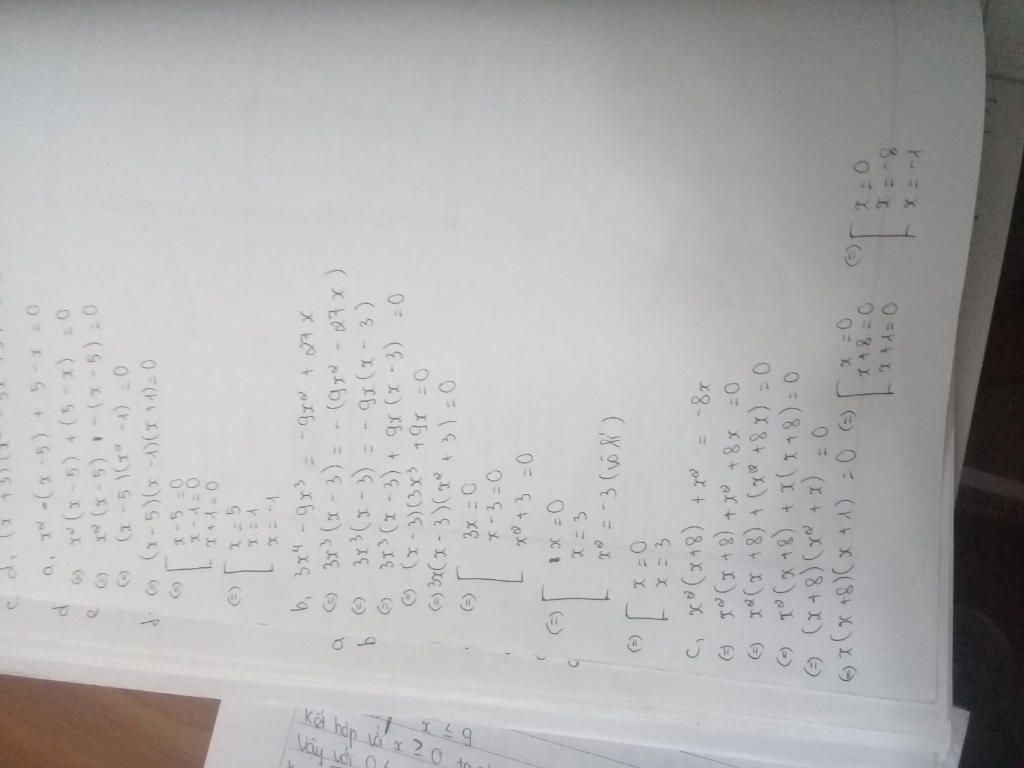 a, x²(x-5) + 5-x = 0
(=) x²(x-5) + (5-x) = 0
(=) x²(x-5) - (x-5) = 0
(=) (x-5)(x²-1) = 0
(=) (x-5)(x-1)(x+1) = 0
(=) [ x-5=0
x-1=0
x+1=0
(=) [ x=5
x=1
x=-1
b, 3x⁴ - 9x³ = -9x² + 27x
(=) 3x³(x-3) = -(9x² - 27x)
(=) 3x³(x-3) = -9x(x-3)
(=) 3x³(x-3) + 9x(x-3) = 0
(=) (x-3)(3x³ + 9x = 0
(=) 3x(x-3)(x² + 3) = 0
(=) [ 3x=0
x-3=0
x²+3=0
(=) [ x=0
x=3
x²=-3 (vô lí)
(=) [ x=0
x=3
c, x²(x+8) + x² = -8x
(=) x²(x+8) + x² + 8x = 0
(=) x²(x+8) + (x²+8x) = 0
(=) x²(x+8) + x(x+8) = 0
(=) (x+8)(x²+x) = 0
(=) x(x+8)(x+1) = 0 (=) [ x=0 (=) [ x=0
x+8=0 x=-8
x+1=0 x=-1
Kết hợp với
x ≤ 9
x ≥ 0
Vậy với